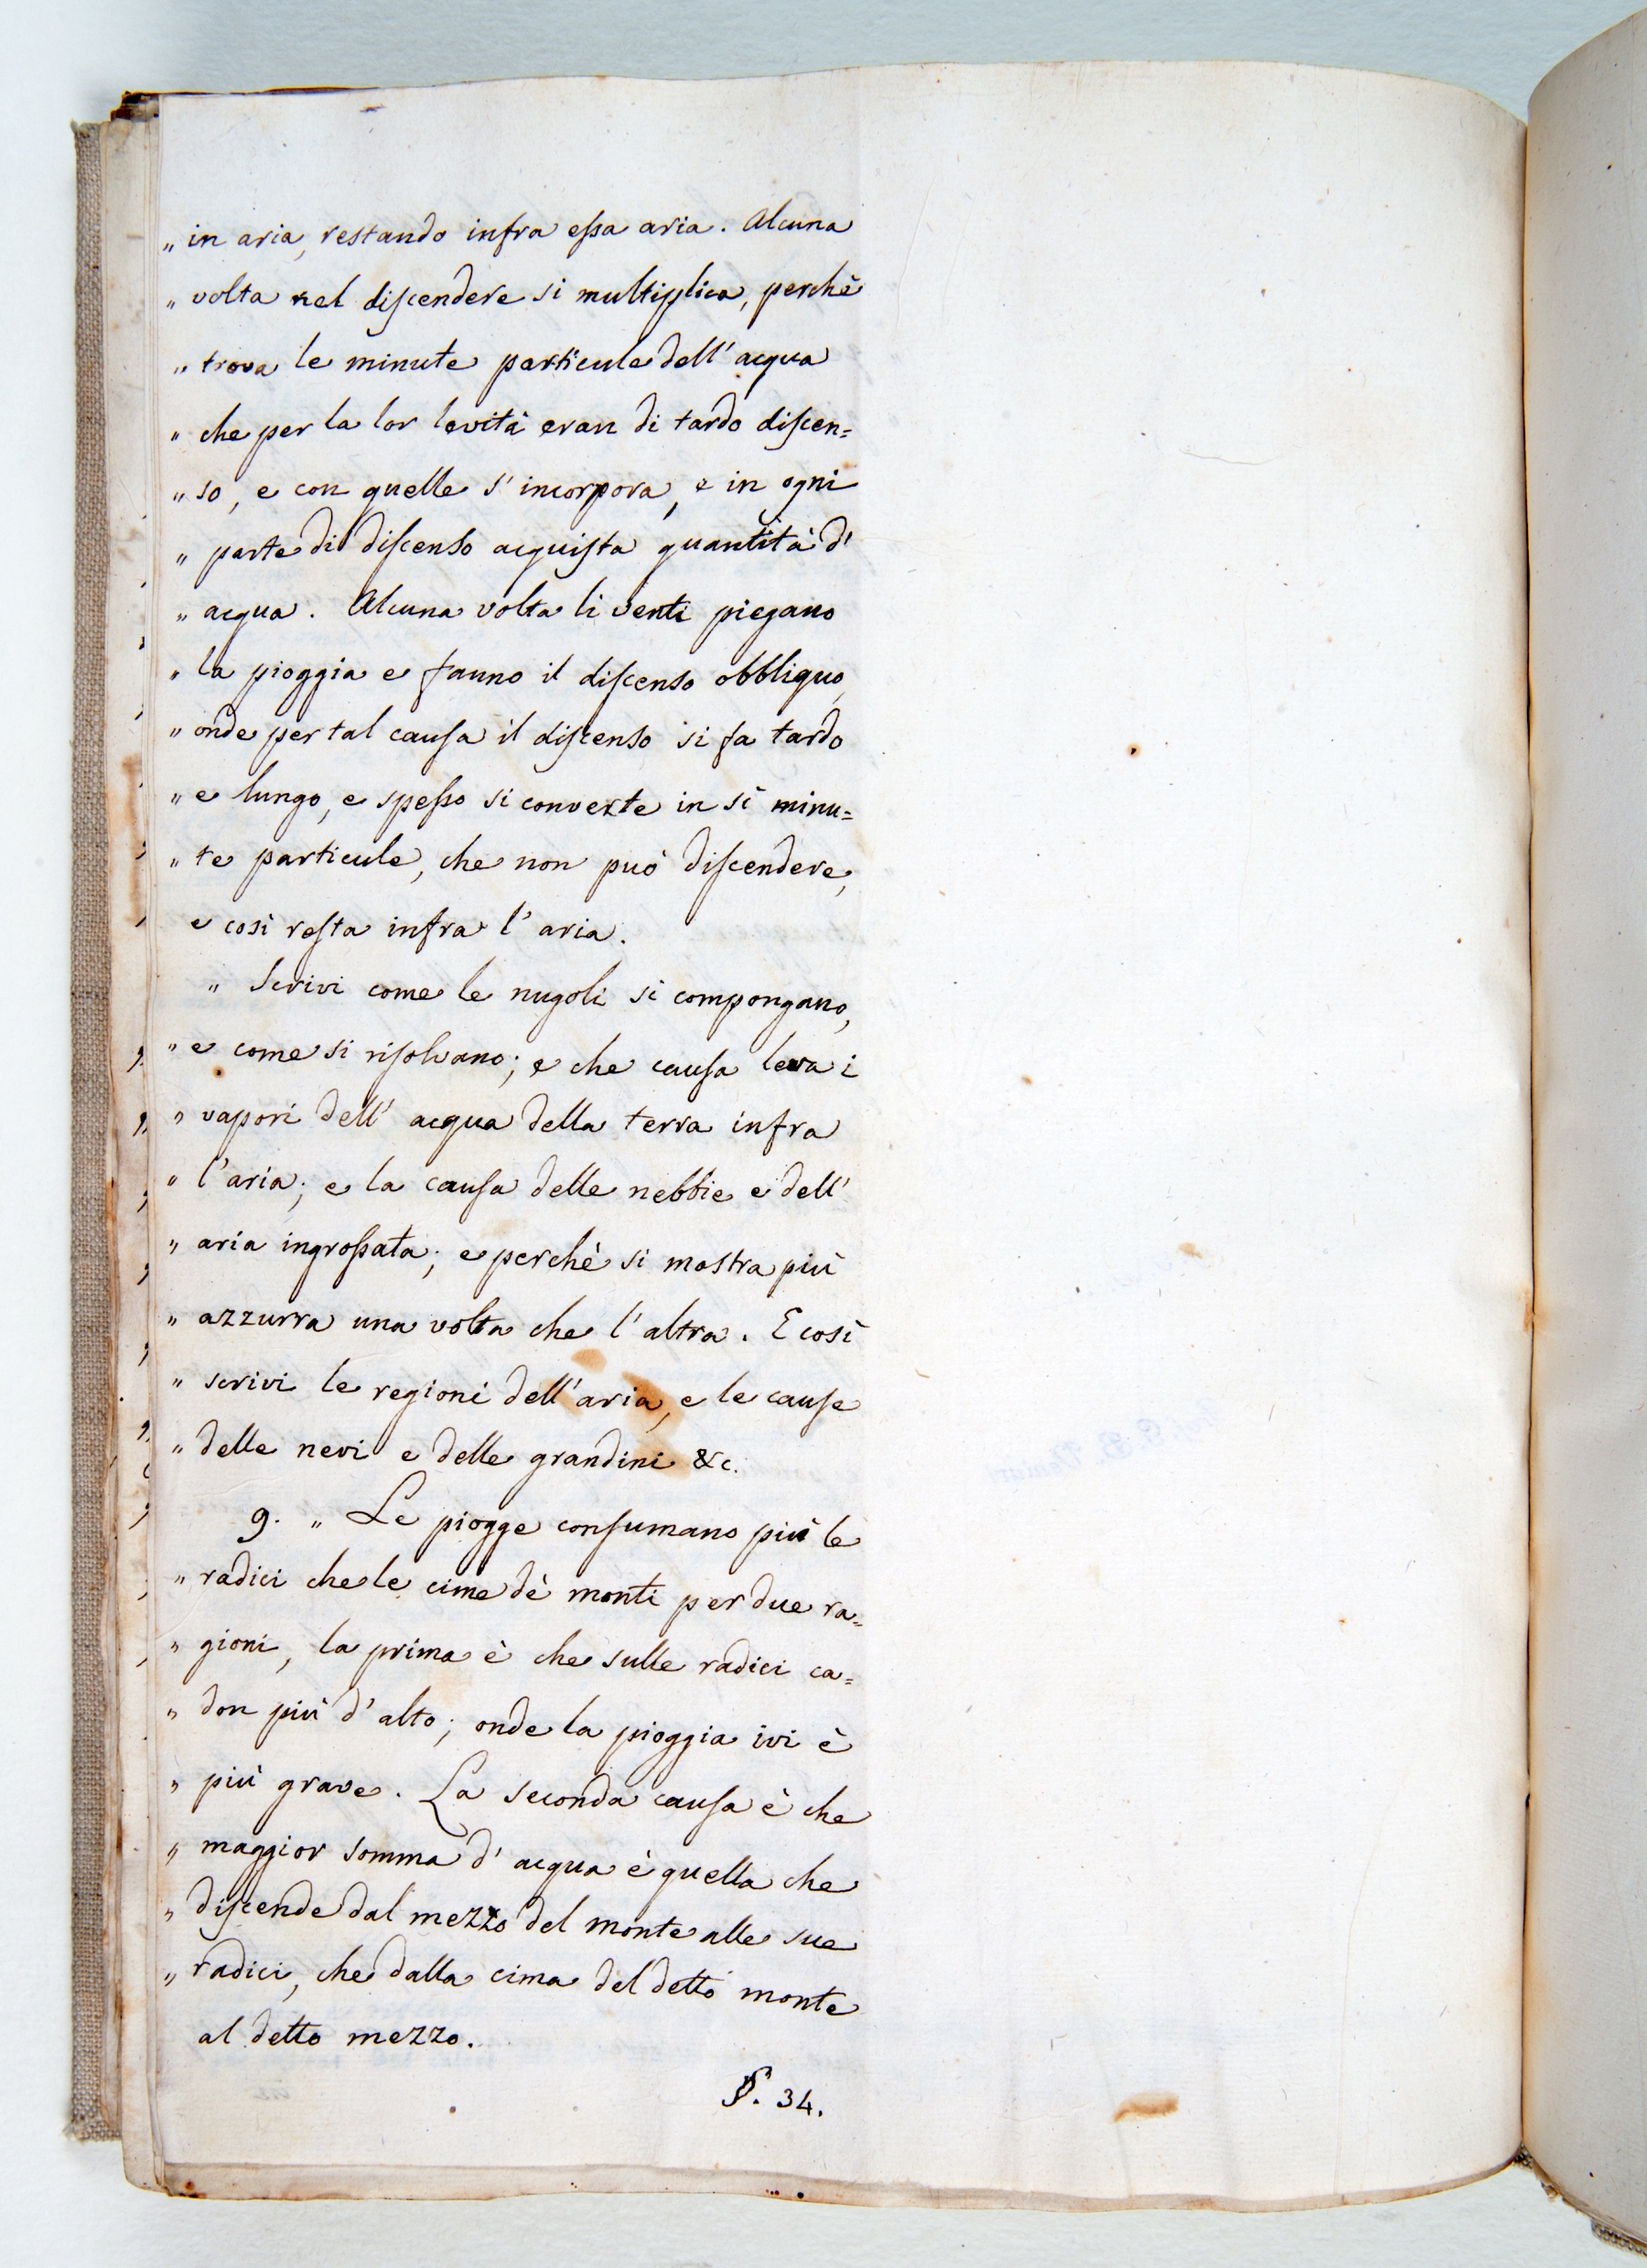 „ in aria, restando infra eſsa aria. Alcuna
„ volta nel diſcendere si multiplica, perchè
„ trova le minute particule dell' acqua
„ che per la lor levità eran di tardo diſcen=
„ so, e con quelle s' incorpora, e in ogni
„ parte di diſcenso acquiſta quantità d'
„ acqua. Alcuna volta li venti piegano
„ la pioggia e fanno il diſcenso obbliquo,
„ onde per tal cauſa il diſcenso si fa tardo
„ e lungo, e speſso si converte in sì minu=
„ te particule, che non può diſcendere,
e così reſta infra l' aria.
„ Scrivi come le nugoli si compongano,
„ e come si riſolvano; e che cauſa leva i
„ vapori dell' acqua della terra infra
„ l'aria; e la cauſa delle nebbie e dell'
„ aria ingroſsata; e perchè si mostra più
„ azzurra una volta che l' altra. E così
„ scrivi le regioni dell'aria, e le cauſe
„ delle nevi e delle grandini &c.
9. „ Le piogge conſumano più le
„ radici che le cime dè monti per due ra=
„ gioni, la prima è che sulle radici ca=
„ don più d' alto; onde la pioggia ivi è
„ più grave. La seconda cauſa è che
„ maggior somma d' acqua è quella che
„ diſcende dal mezzo del monte alle sue
„ radici, che dalla cima del detto monte
al detto mezzo.
§. 34.